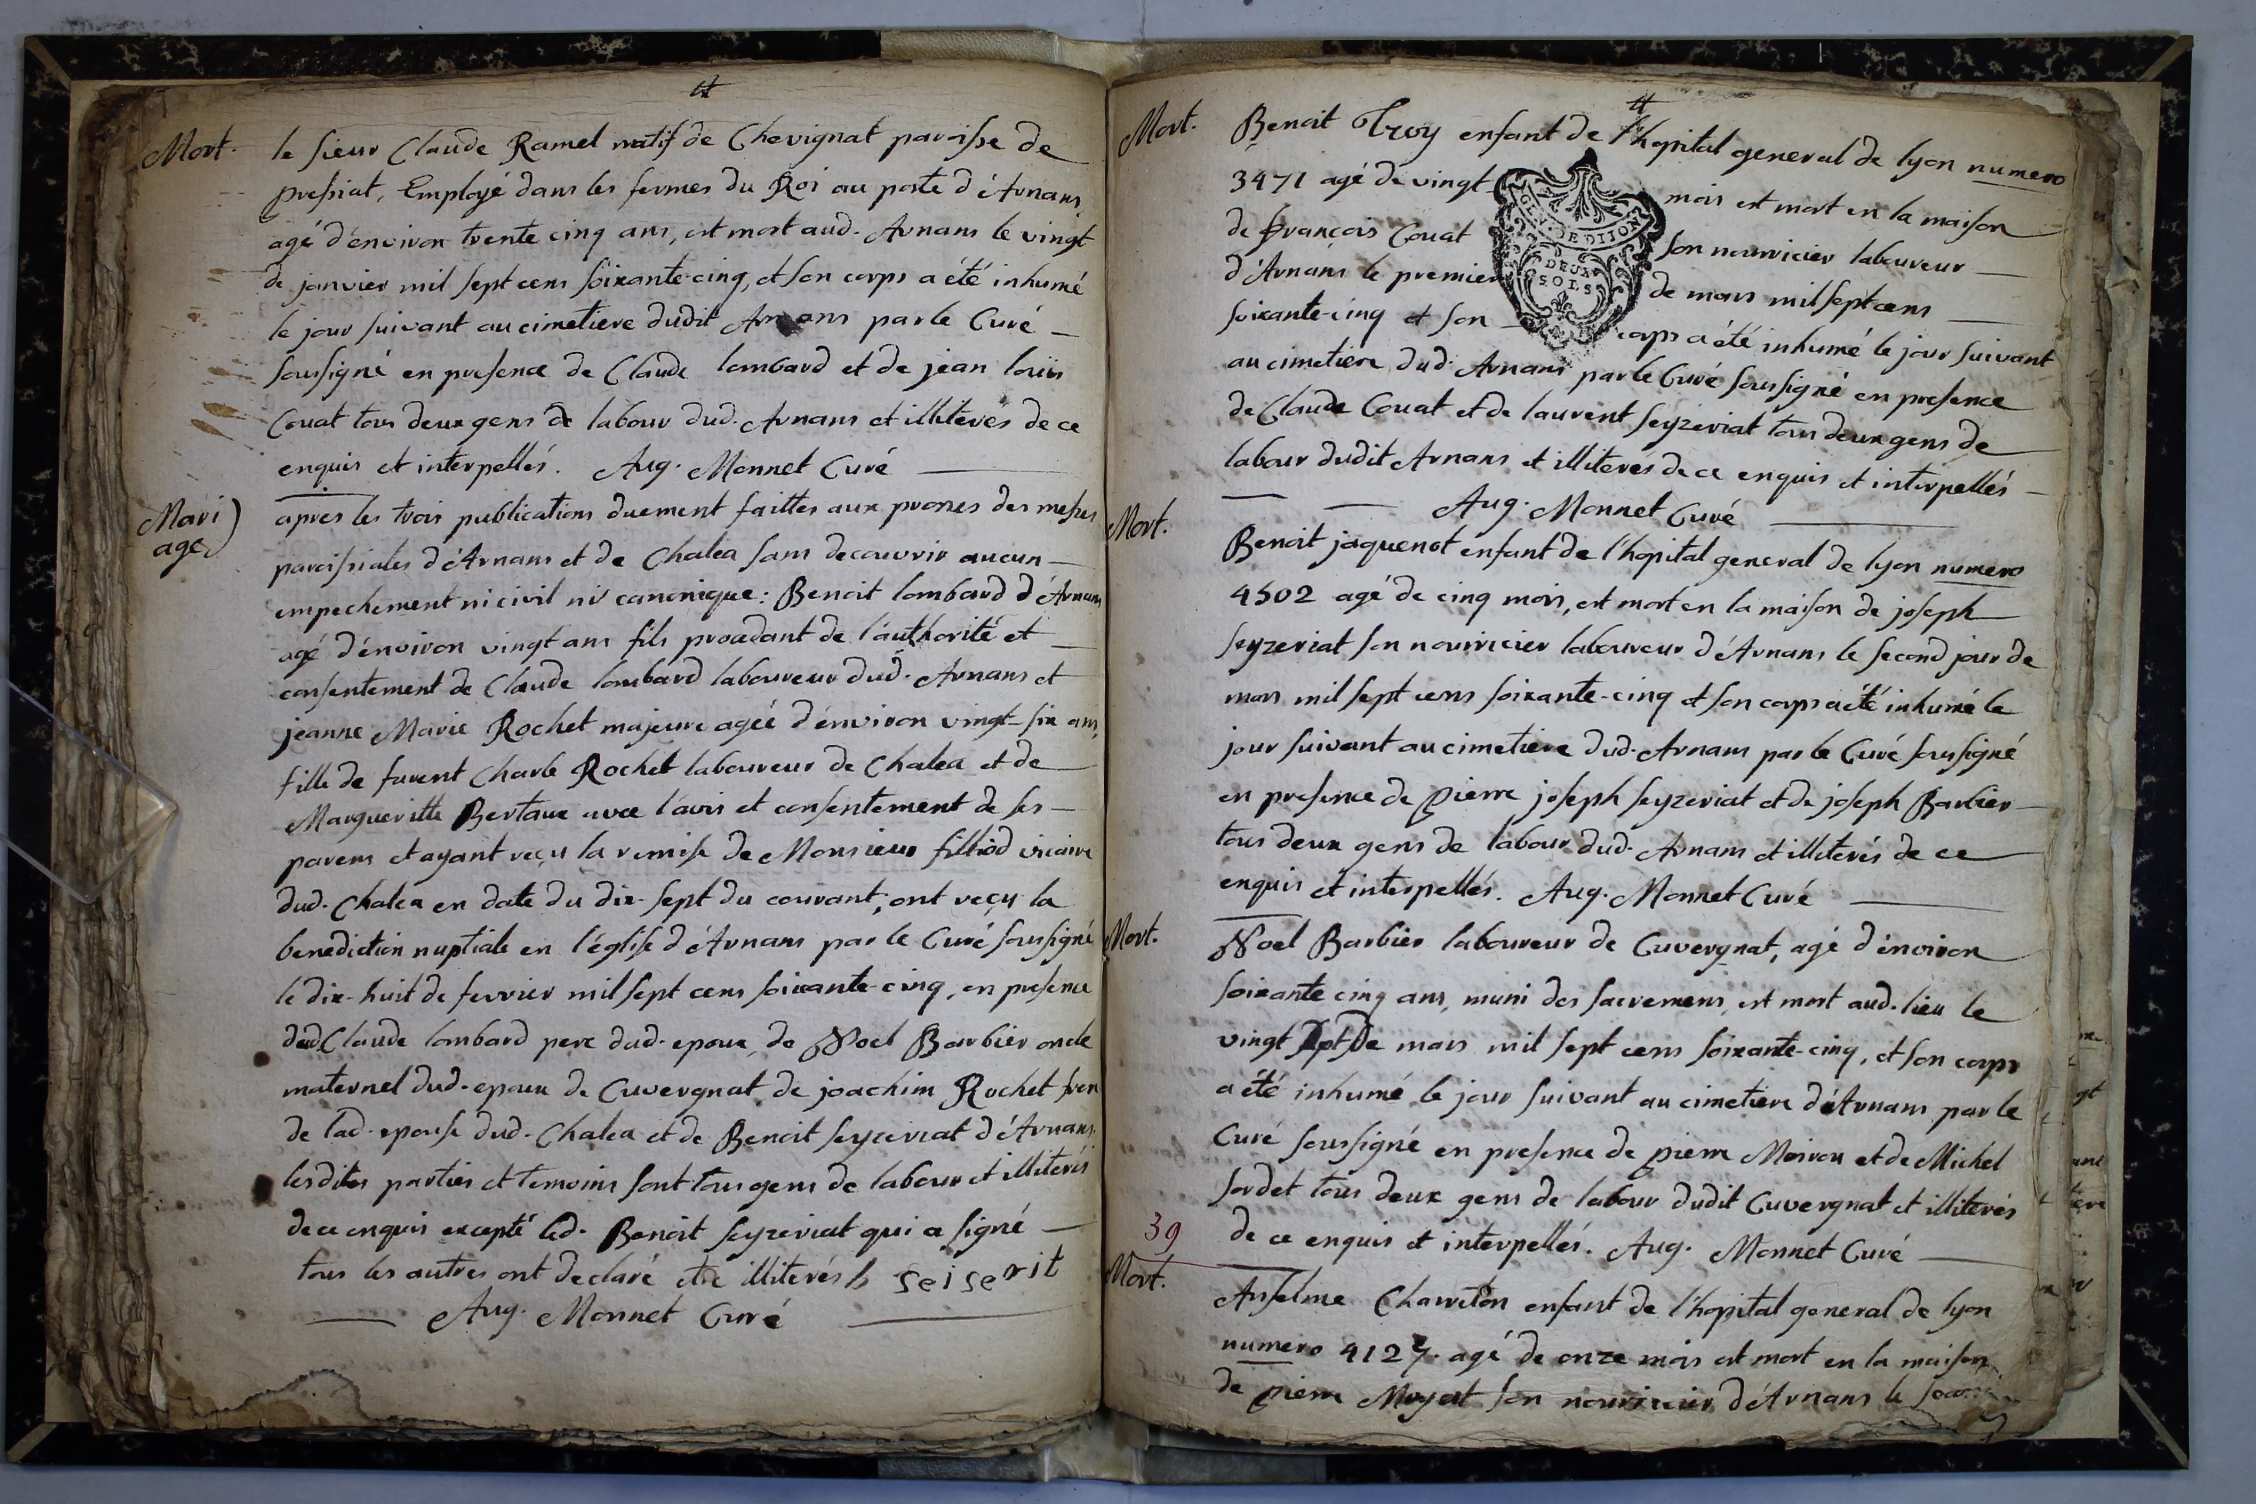 Mort. le sieur Claude Ramel natif de Chevignat paroisse de
pressiat, Employé dans les fermes du Roi au poste d'Arnans
agé d'environ trente cinq ans, est mort aud. Arnans le vingt
de janvier mil sept cens soixante-cinq, et son corps a été inhumé
le jour suivant au cimetiere dudit Arnans par le Curé
soussigné en presence de Claude lombard et de jean loüis
Couat tous deux gens de labour dud. Arnans et illiterés de ce
enquis et interpellés. Aug. Monnet Curé
Mariage apres les trois publications duement faittes aux prones des messes
paroissiales d'Arnans et de Chalea sans decouvrir aucun
empechement ni civil ni canonique: Benoit lombard d'Arnans
agé d'environ vingt ans fils procedant de l'authorité et
consentement de Claude lombard laboureur dud. Arnans et
jeanne Marie Rochet majeure agéé d'environ vingt-six ans,
fille de furent Charle Rochet laboureur de Chalea et de
Margueritte Bertaux avec l'avis et consentement de ses
parens et ayant reçu la remise de Monsieur filliod vicaire
dud. Chalea en date du dix-sept du courant; ont reçu la
benediction nuptiale en l'église d'Arnans par le Curé soussigné
le dix-huit de fevrier mil sept cens soixante-cinq, en presence
dud Claude lombard pere dud. epoux, de Noel Barbier oncle
maternel dud. epoux de Cuvergnat de joachim Rochet frere
de lad. epouse dud. Chalea et de Benoit seyzeriat d'Arnans.
lesdites parties et temoins sont tous gens de labour et illiterés
de ce enquis excepté led. Benoit seyzeriat qui a signé
tous les autres ont declaré etre illiterés b seiserit
Aug. Monnet Curé
Mort. Benoit Troy enfant de l'hopital general de lyon numero
3471 agé de vingt mois est mort en la maison
de françois Couat son nourricier laboureur
d'Arnans le premier de mars mil sept cens
soixante-cinq et son corps a été inhumé le jour suivant
au cimetiere dud. Arnans par le Curé soussigné en presence
de Claude Couat et de laurent seyzeriat tous deux gens de
labour dudit Arnans et illiteres de ce enquis et interpellés
Aug. Monnet Curé
GEN. DE DIJON
DEUX
SOLS
Mort. Benoit jaquenot enfant de l'hopital general de lyon numero
4502 agé de cinq mois, est mort en la maison de joseph
seyzeriat son nourricier laboureur d'Arnans le second jour de
mars mil sept cens soixante-cinq et son corps a été inhumé le
jour suivant au cimetiere dud. Arnans par le Curé soussigné
en presence de pierre joseph seyzeriat et de joseph Barbier
tous deux gens de labour dud. Arnans et illiterés de ce
enquis et interpellés. Aug. Monnet Curé
Mort. Noel Barbier laboureur de Cuvergnat, agé d'environ
soixante cinq ans, muni des sacremens, est mort aud. lieu le
vingt sept de mars mil sept cens soixante-cinq, et son corps
a été inhumé le jour suivant au cimetiere d'Arnans par le
Curé soussigné en presence de pierre Moiron et de Michel
sordet tous deux gens de labour dudit Cuvergnat et illiterés
de ce enquis et interpellés. Aug. Monnet Curé
39
Mort. Anselme Charreton enfant de l'hopital general de lyon
numero 4127. agé de onze mois est mort en la maison
de pierre Moyat son nourricier d'Arnans le